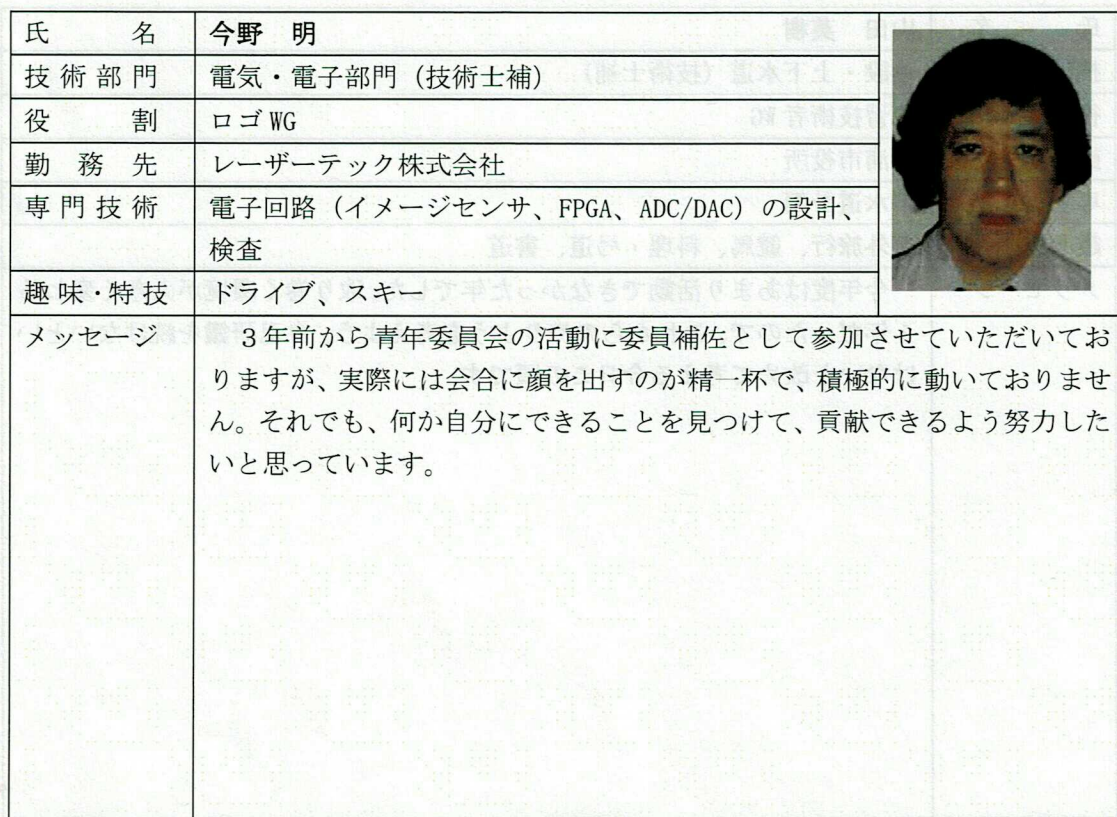 氏名 今野 明
技術部門 電気・電子部門（技術士補）
役割 ロゴ WG
勤務先 レーザーテック株式会社
専門技術 電子回路（イメージセンサ、FPGA、ADC/DAC）の設計、
検査
趣味・特技 ドライブ、スキー
メッセージ ３年前から青年委員会の活動に委員補佐として参加させていただいてお
りますが、実際には会合に顔を出すのが精一杯で、積極的に動いておりませ
ん。それでも、何か自分にできることを見つけて、貢献できるよう努力した
いと思っています。